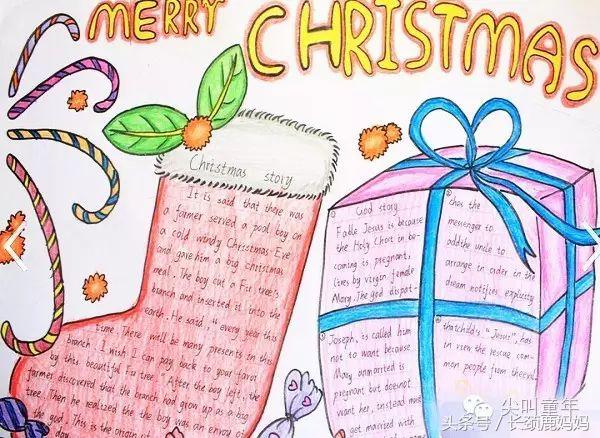 MERRY CHRISTMAS
Christmas story
It is said that there was
a farmer served a pool boy on
a cold windy Christmas Eve
and gave him a big christmas
meal. The boy cut a Fir tree's
branch and inserted it into the
earth. He said, "every year this
time. There will be many presents in this
branch. I wish I can pay back to your favor
by this beautiful Fir tree. After the boy left, the
farmer discovered that the branch had grow up as a big
tree. Then he realized the the boy was an envoy of
the god. This is the origin of
day
① God story
Fable Jesus is because
the Holy Ghost in be-
coming is pregnant,
lives by virgin female
Mary. The god dispat-
② ches the
messenger to
adds the uncle to
arrange in order in the
dream notifies explicitly
③ Joseph, is called him
not to want because
Mary unmarried is
pregnant but does not
want her, instead must
get married with
④ that child's "Jesus", has
in view the rescue com-
mon people from the evil
尖叫童年
头条号/长颈鹿妈妈